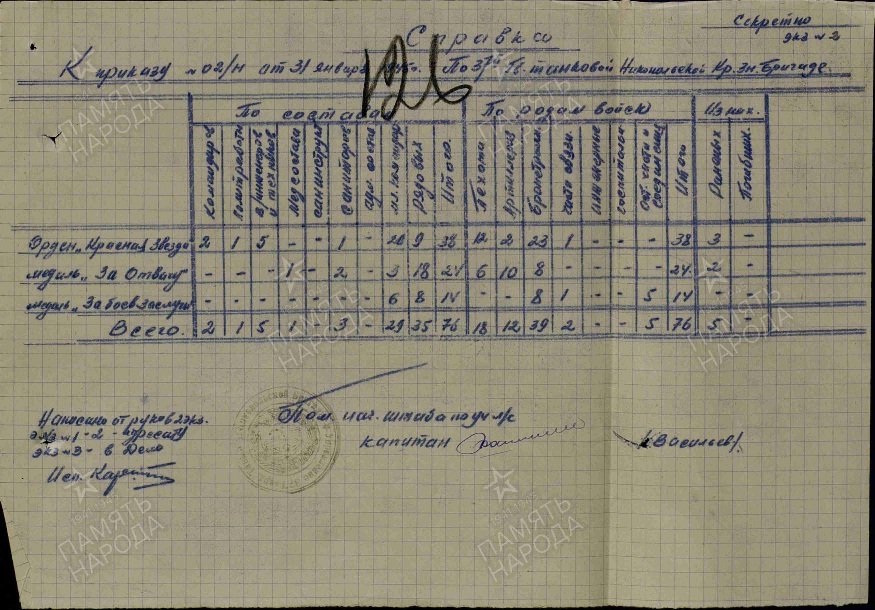 Секретно
экз №2
Справка
К приказу №02/н от 31 января По 37й Гв. танковой Никопольской Кр. Зн. Бригаде.
По составам По родам войск Из них.
Командиров политработн. инженеров и техников медсостава санинструк санитаров адм. состав мл. командир рядовых Итого. Пехота Артиллерия Бронетанк. части связи инженерные госпиталя от. части и соединения Итого Раненых Погибших.
Орден "Красная Звезда" 2 1 5 - - 1 - 20 9 38 12 2 23 1 - - - 38 3 -
медаль "За Отвагу" - - - 1 - 2 - 3 18 24 6 10 8 - - - - 24 2 -
медаль "За боев. заслуги" - - - - - - - 6 8 14 - - 8 1 - - 5 14 - -
Всего. 2 1 5 1 - 3 - 29 35 76 18 12 39 2 - - 5 76 5 -
Написано от руки в 2 экз.
экз №1-2 - адресату
экз №3 - в Дело
Исп.
Пом. нач. штаба по уч. л/с
капитан
/Васильев/.
ПАМЯТЬ НАРОДА